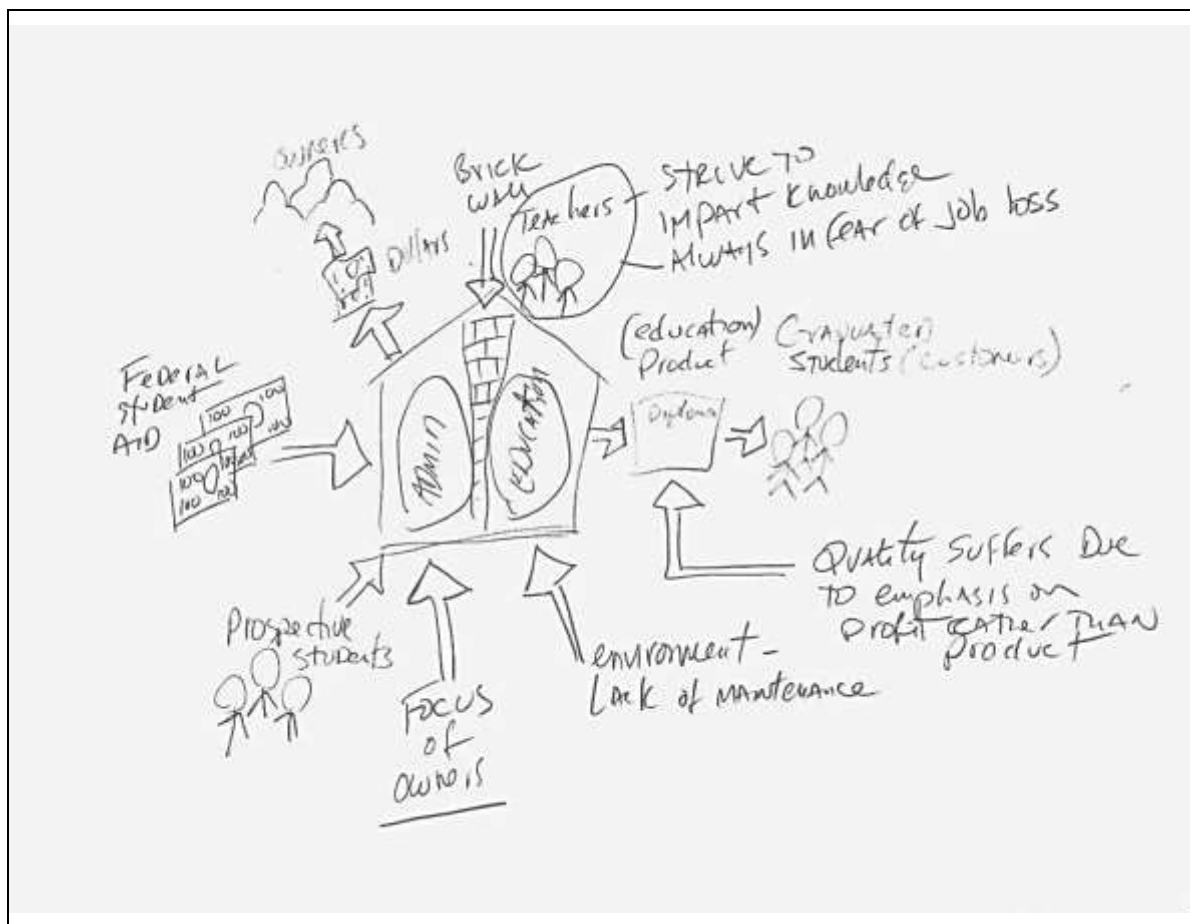 owners
Dollars
Brick
wall
Teachers
STRIVE TO
IMPART Knowledge
Always in fear of job loss
Federal
student
AID
100 100
100 100
100
100
100 100
ADMIN
EDUCATION
(education)
Product
Graduated
Students (customers)
Diploma
Quality suffers Due
To emphasis on
profit rather THAN
product
Prospective
students
Focus
of
owners
environment -
Lack of maintenance